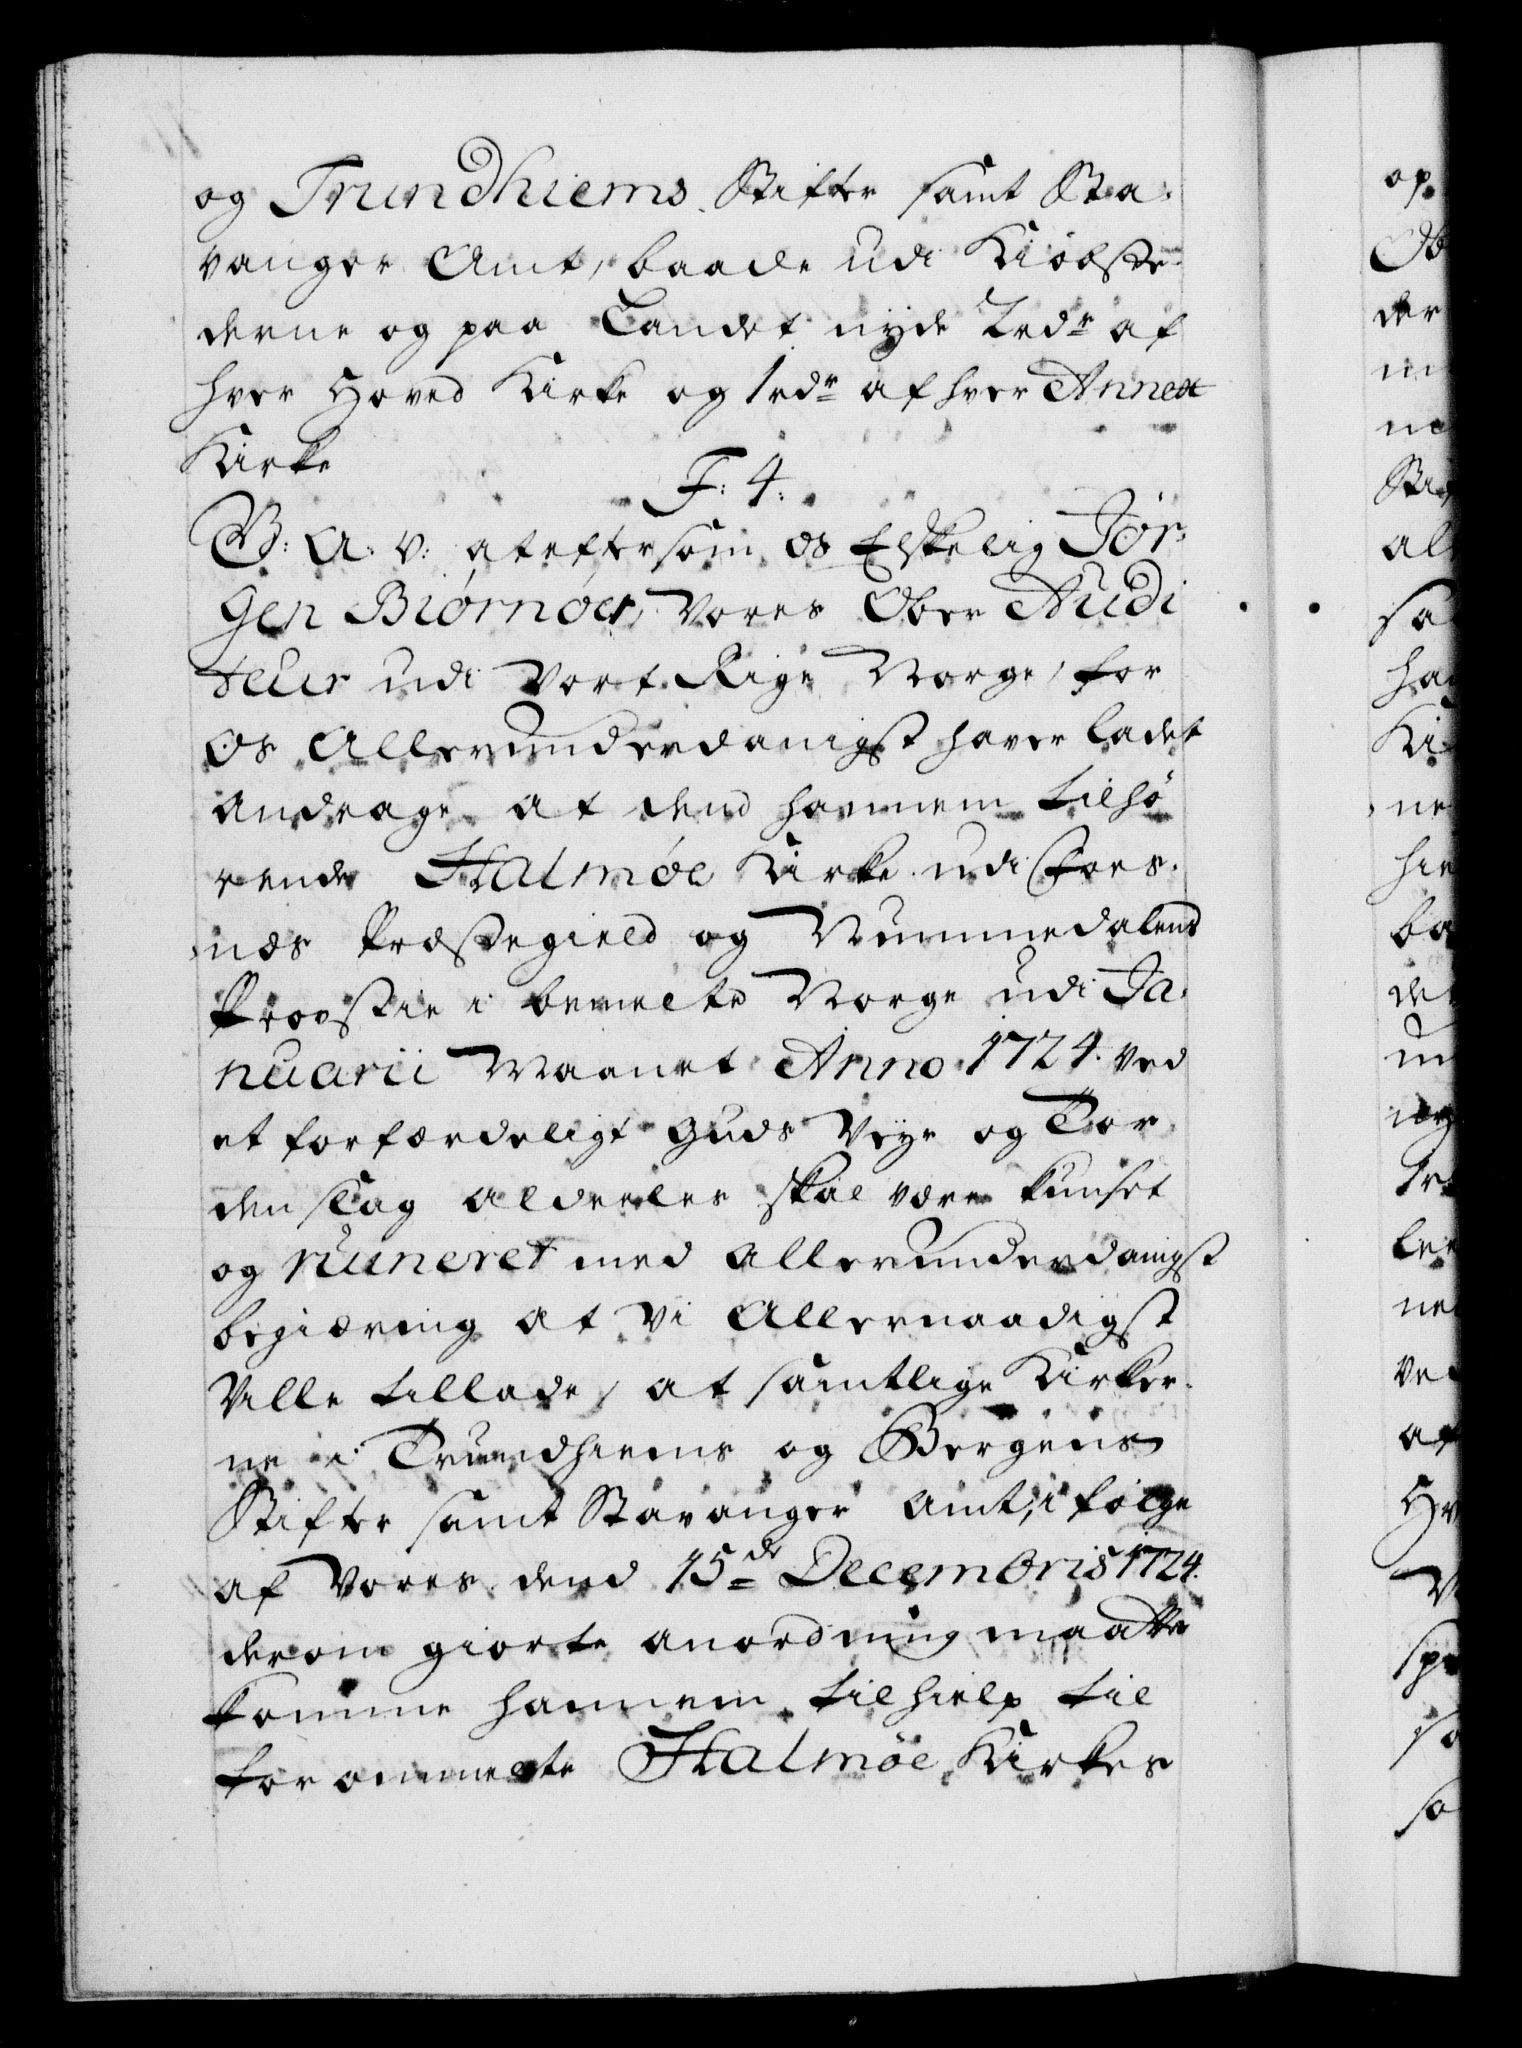 og Trundhiems Stifter samt Sta-
vanger Amt, baade udi Kiøbste-
derne og paa Landet nyde 2rdr af
hver Hoved Kirke og 1rdr af hver Annex
Kirke
F: 4:
G: A: V: at eftersom os Elskelig Jør-
gen Biørnøer, Vores Ober Audi
teur udi vort Rige Norge, for
os Allerunderdanigst haver ladet
andrage at dend hannem tilhø
rende Halmøe Kirke udi Foes-
næs Præstegield og Nummedalens
Provstie i bemelte Norge udi Ja-
nuarii Maanet Anno 1724. ved
et forfærdeligt Guds Veyr og Tor
denslag aldeeles skal være knuset
og ruineret med allerunderdanigst
begiæring at Vi Allernaadigst
Ville tillade, at samtlige Kirker-
ne i Trundhiems og Bergens
Stifter samt Stavanger Amt, i følge
af Vores dend 15de Decembris 1724.
derom giorte anordning maatte
komme hannem til hielp til
forommelte Halmøe Kirkes